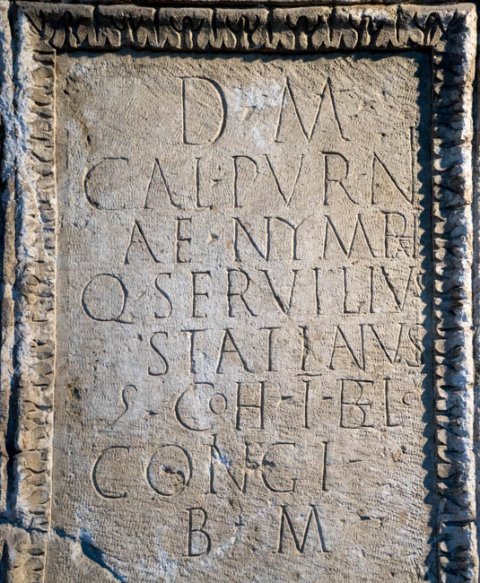 D · M
CAL · PVR · NI
AE · NYMP
Q · SERVILIVS
STATIANVS
S · COH · I · BEL
CONIGI
B · M